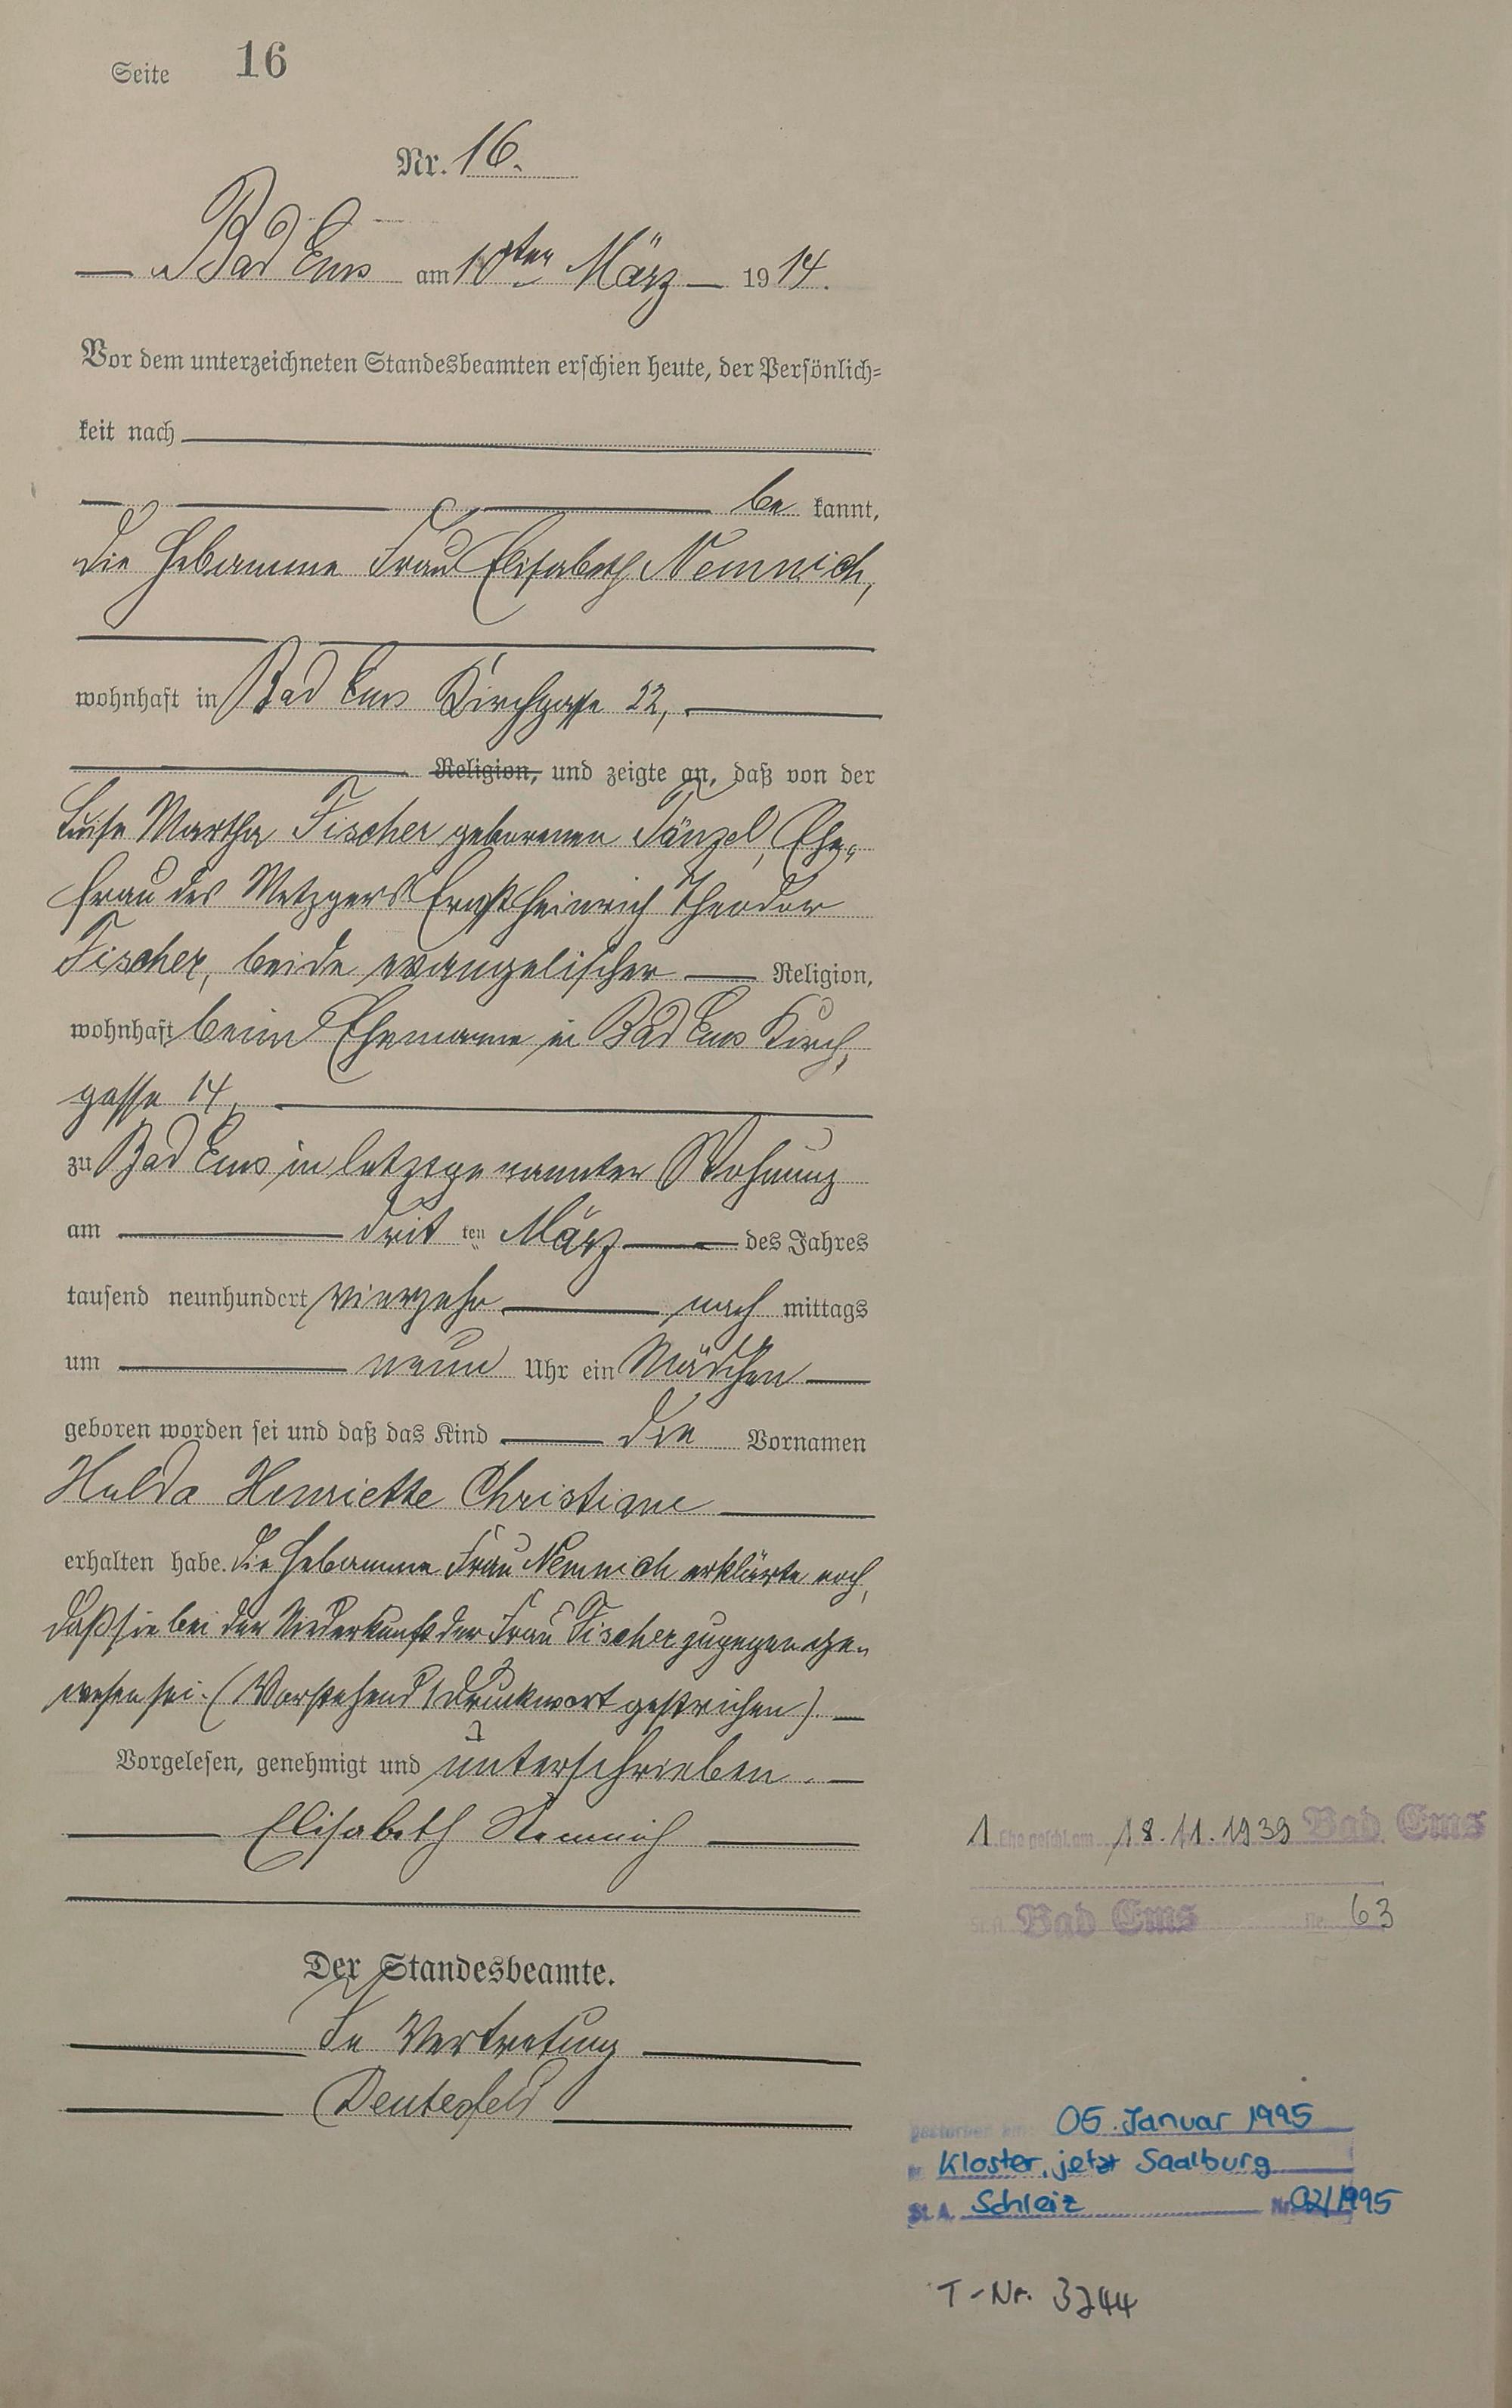 Seite 16
Nr. 16.
Bad Ems am 10ten März 1914.
Vor dem unterzeichneten Standesbeamten erschien heute, der Persönlich=
keit nach
be kannt,
die Hebamme Frau Elisabeth Nemnich,
wohnhaft in Bad Ems Kirchgasse 22,
Religion, und zeigte an, daß von der
Luise Martha Fischer geborenen Tänzel, Ehe-
frau des Metzgers Ernst Heinrich Theodor
Fischer, beide evangelischer Religion,
wohnhaft beim Ehemanne in Bad Ems Kirch-
gasse 14,
zu Bad Ems in letztgenannter Wohnung
am dritten März des Jahres
tausend neunhundert vierzehn nach mittags
um neun Uhr ein Mädchen
geboren worden sei und daß das Kind die Vornamen
Hulda Henriette Christiane
erhalten habe. Die Hebamme Frau Nemnich erklärte noch,
daß sie bei der Niederkunft der Frau Fischer zugegen ge-
wesen sei. (Vorstehend 1 Druckwort gestrichen).
Vorgelesen, genehmigt und unterschrieben.
Elisabeth Nemnich
Der Standesbeamte.
In Vertretung
1. Ehe geschl. am 18.11.1939 Bad Ems
St. A. Bad Ems Nr. 63
gestorben am: 05. Januar 1995
in Kloster, jetzt Saalburg
St. A. Schleiz Nr. 02/1995
T-Nr. 3744